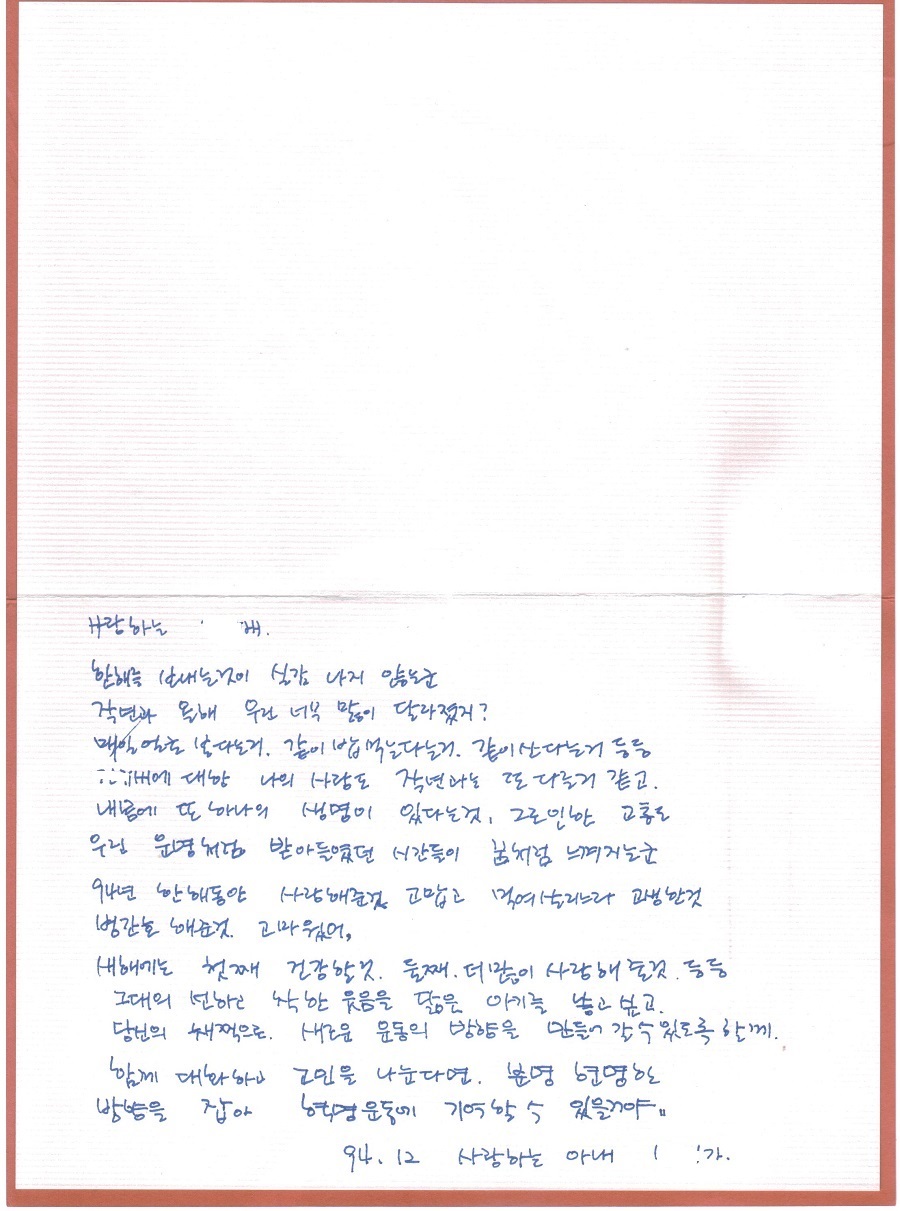 사랑하는 배.
한해를 보내는것이 실감 나지 않는군
작년과 올해 우린 너무 많이 달라졌지?
매일 얼굴 본다는거. 같이 밥먹는다는거. 같이 산다는거 등등
배에 대한 나의 사랑도 작년과는 또 다른거 같고.
내몸에 또 하나의 생명이 있다는것, 그로인한 고통도
우린 운명처럼 받아들였던 시간들이 꿈처럼 느껴지는군
94년 한해동안 사랑해준것 고맙고 먹여살리느라 고생한것
병간호 해준것. 고마웠어,
새해에는 첫째 건강할것. 둘째. 더많이 사랑해 줄것. 등등
그대의 선하고 착한 웃음을 닮은 아기를 낳고 싶고.
당신의 새로운 운동의 방향을 만들어 갈 수 있도록 할께.
함께 대화하고 고민을 나눈다면. 분명 현명한
방향을 잡아 혁명운동에 기여할 수 있을거야..
94.12 사랑하는 아내 가.